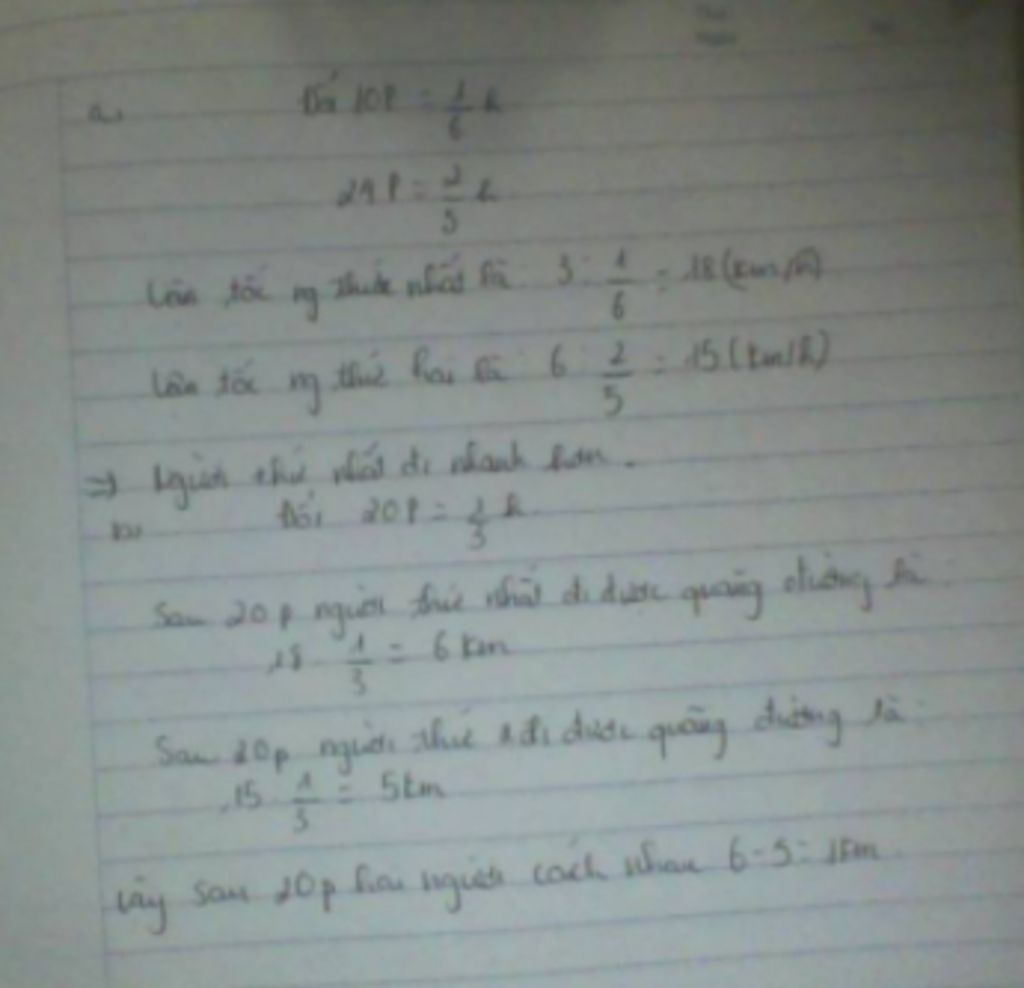 a, Đổi 10p = 1/6 h
24p = 2/5 h
Vận tốc ng thứ nhất là: 3 : 1/6 = 18 (km/h)
Vận tốc ng thứ hai là: 6 : 2/5 = 15 (km/h)
=> Người thứ nhất đi nhanh hơn.
b, Đổi 20p = 1/3 h
Sau 20p người thứ nhất đi được quãng đường là:
18 . 1/3 = 6 km
Sau 20p người thứ 2 đi được quãng đường là:
15 . 1/3 = 5km
Vậy sau 20p hai người cách nhau 6-5=1km.